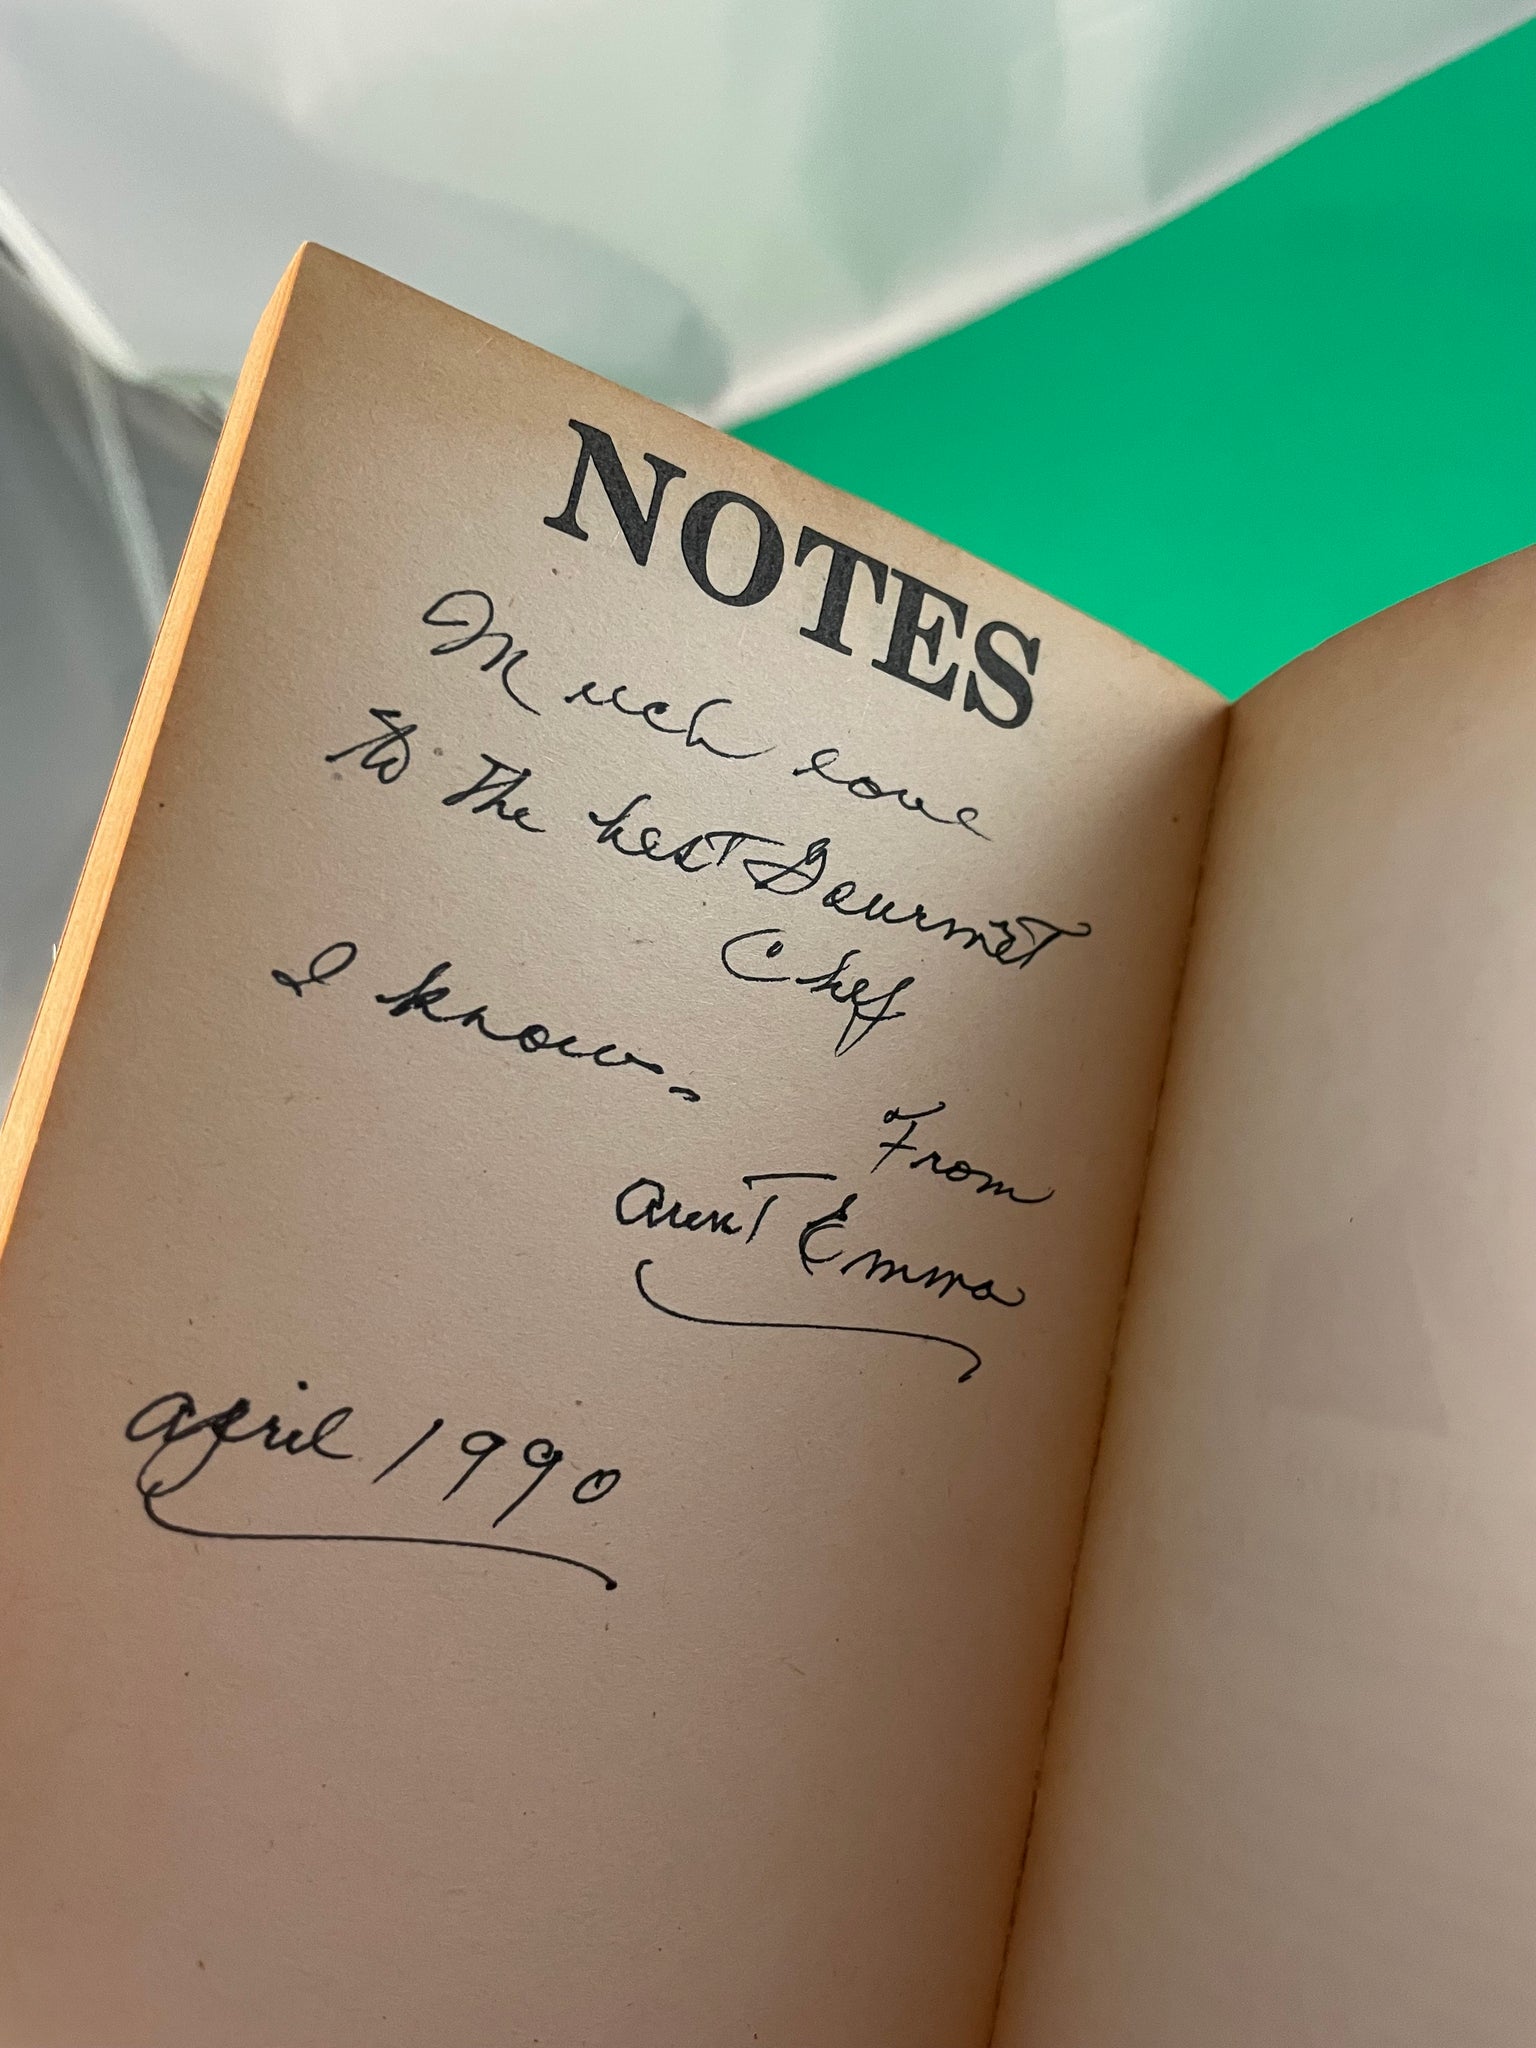 NOTES
Much love
to The best Gourmet
Chef
I know -
From
Aunt Emma
April 1990